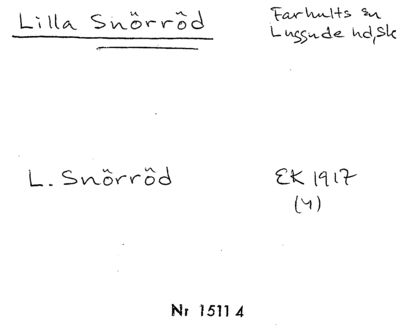 Lilla Snörröd
Farhults sn
Luggude hd, Sk
L. Snörröd
EK 1917
(4)
Nr 1511 4